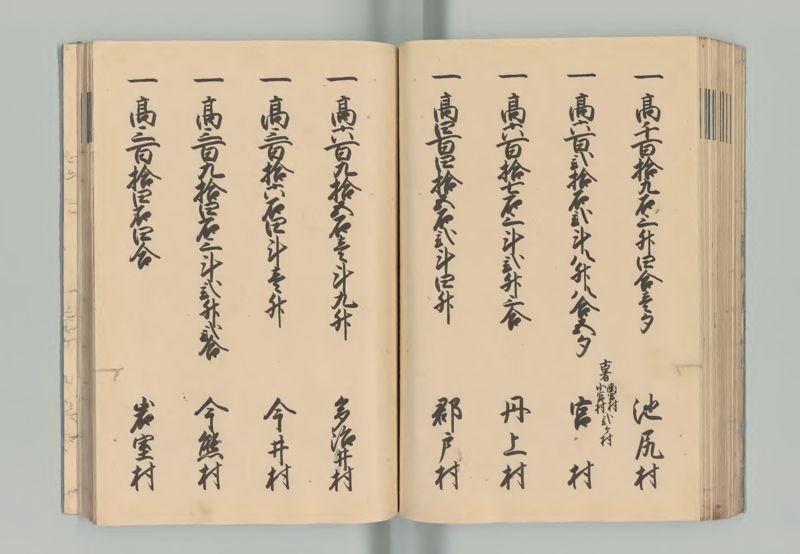 一高千百拾九石三升四合壱夕
池尻村
一高六百弐拾石弐斗八升八合五夕
宮村
一高六百拾七石三斗弐升三合
丹上村
一高四百四拾五石弐斗四升
郡戸村
一高六百九拾五石壱斗九升
多治井村
一高三百拾六石四斗壱升
今井村
一高三百九拾四石三斗弐升弐合
今熊村
一高三百拾四石四合
岩室村